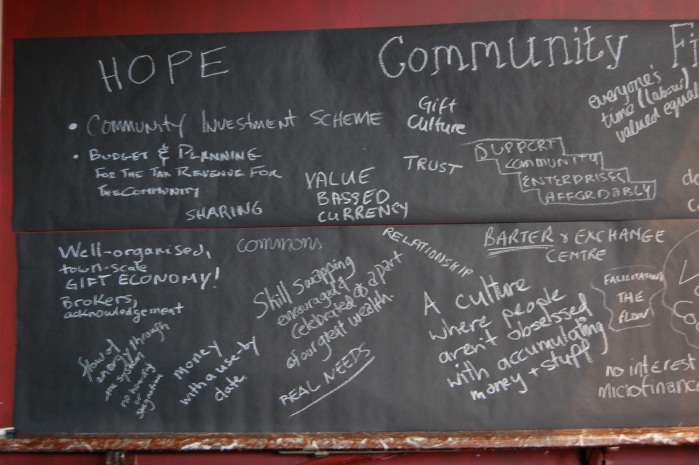 HOPE
Community Fi
• COMMUNITY INVESTMENT SCHEME
• BUDGET & PLANNING
FOR THE TAX REVENUE FOR
THE COMMUNITY
SHARING
Gift
Culture
TRUST
VALUE
BASSED
CURRENCY
SUPPORT
COMMUNITY
ENTERPRISES
AFFORDABLY
everyone's
time (labour)
valued equal
Well-organised,
town-scale
GIFT ECONOMY!
Brokers,
acknowledgement
flow of
energy through
the system
stagnation
commons
Skill swapping
encouraged &
celebrated as a part
of our great wealth.
money
with a use-by
date
REAL NEEDS
RELATIONSHIP
BARTER & EXCHANGE
CENTRE
A culture
where people
aren't obsessed
with accumulating
money + stuff
FACILITATING
THE
FLOW
no interest
Microfinance